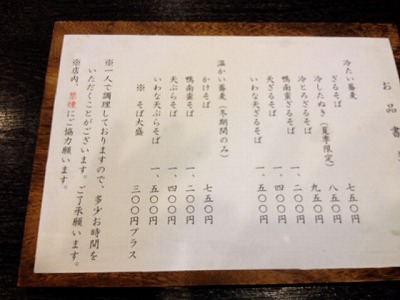 お品書
冷たい蕎麦
ざるそば 七五〇円
冷したぬき(夏季限定) 八五〇円
冷とろざるそば 九五〇円
鴨南蛮ざるそば 一、二〇〇円
天ざるそば 一、四〇〇円
いわな天ざるそば 一、五〇〇円
温かい蕎麦(冬期間のみ)
かけそば 七五〇円
鴨南蛮そば 一、二〇〇円
天ぷらそば 一、四〇〇円
いわな天ぷらそば 一、五〇〇円
※ そば大盛 三〇〇円プラス
※一人で調理しておりますので、多少お時間を
いただくことがございます。ご了承願います。
※店内、禁煙にご協力願います。